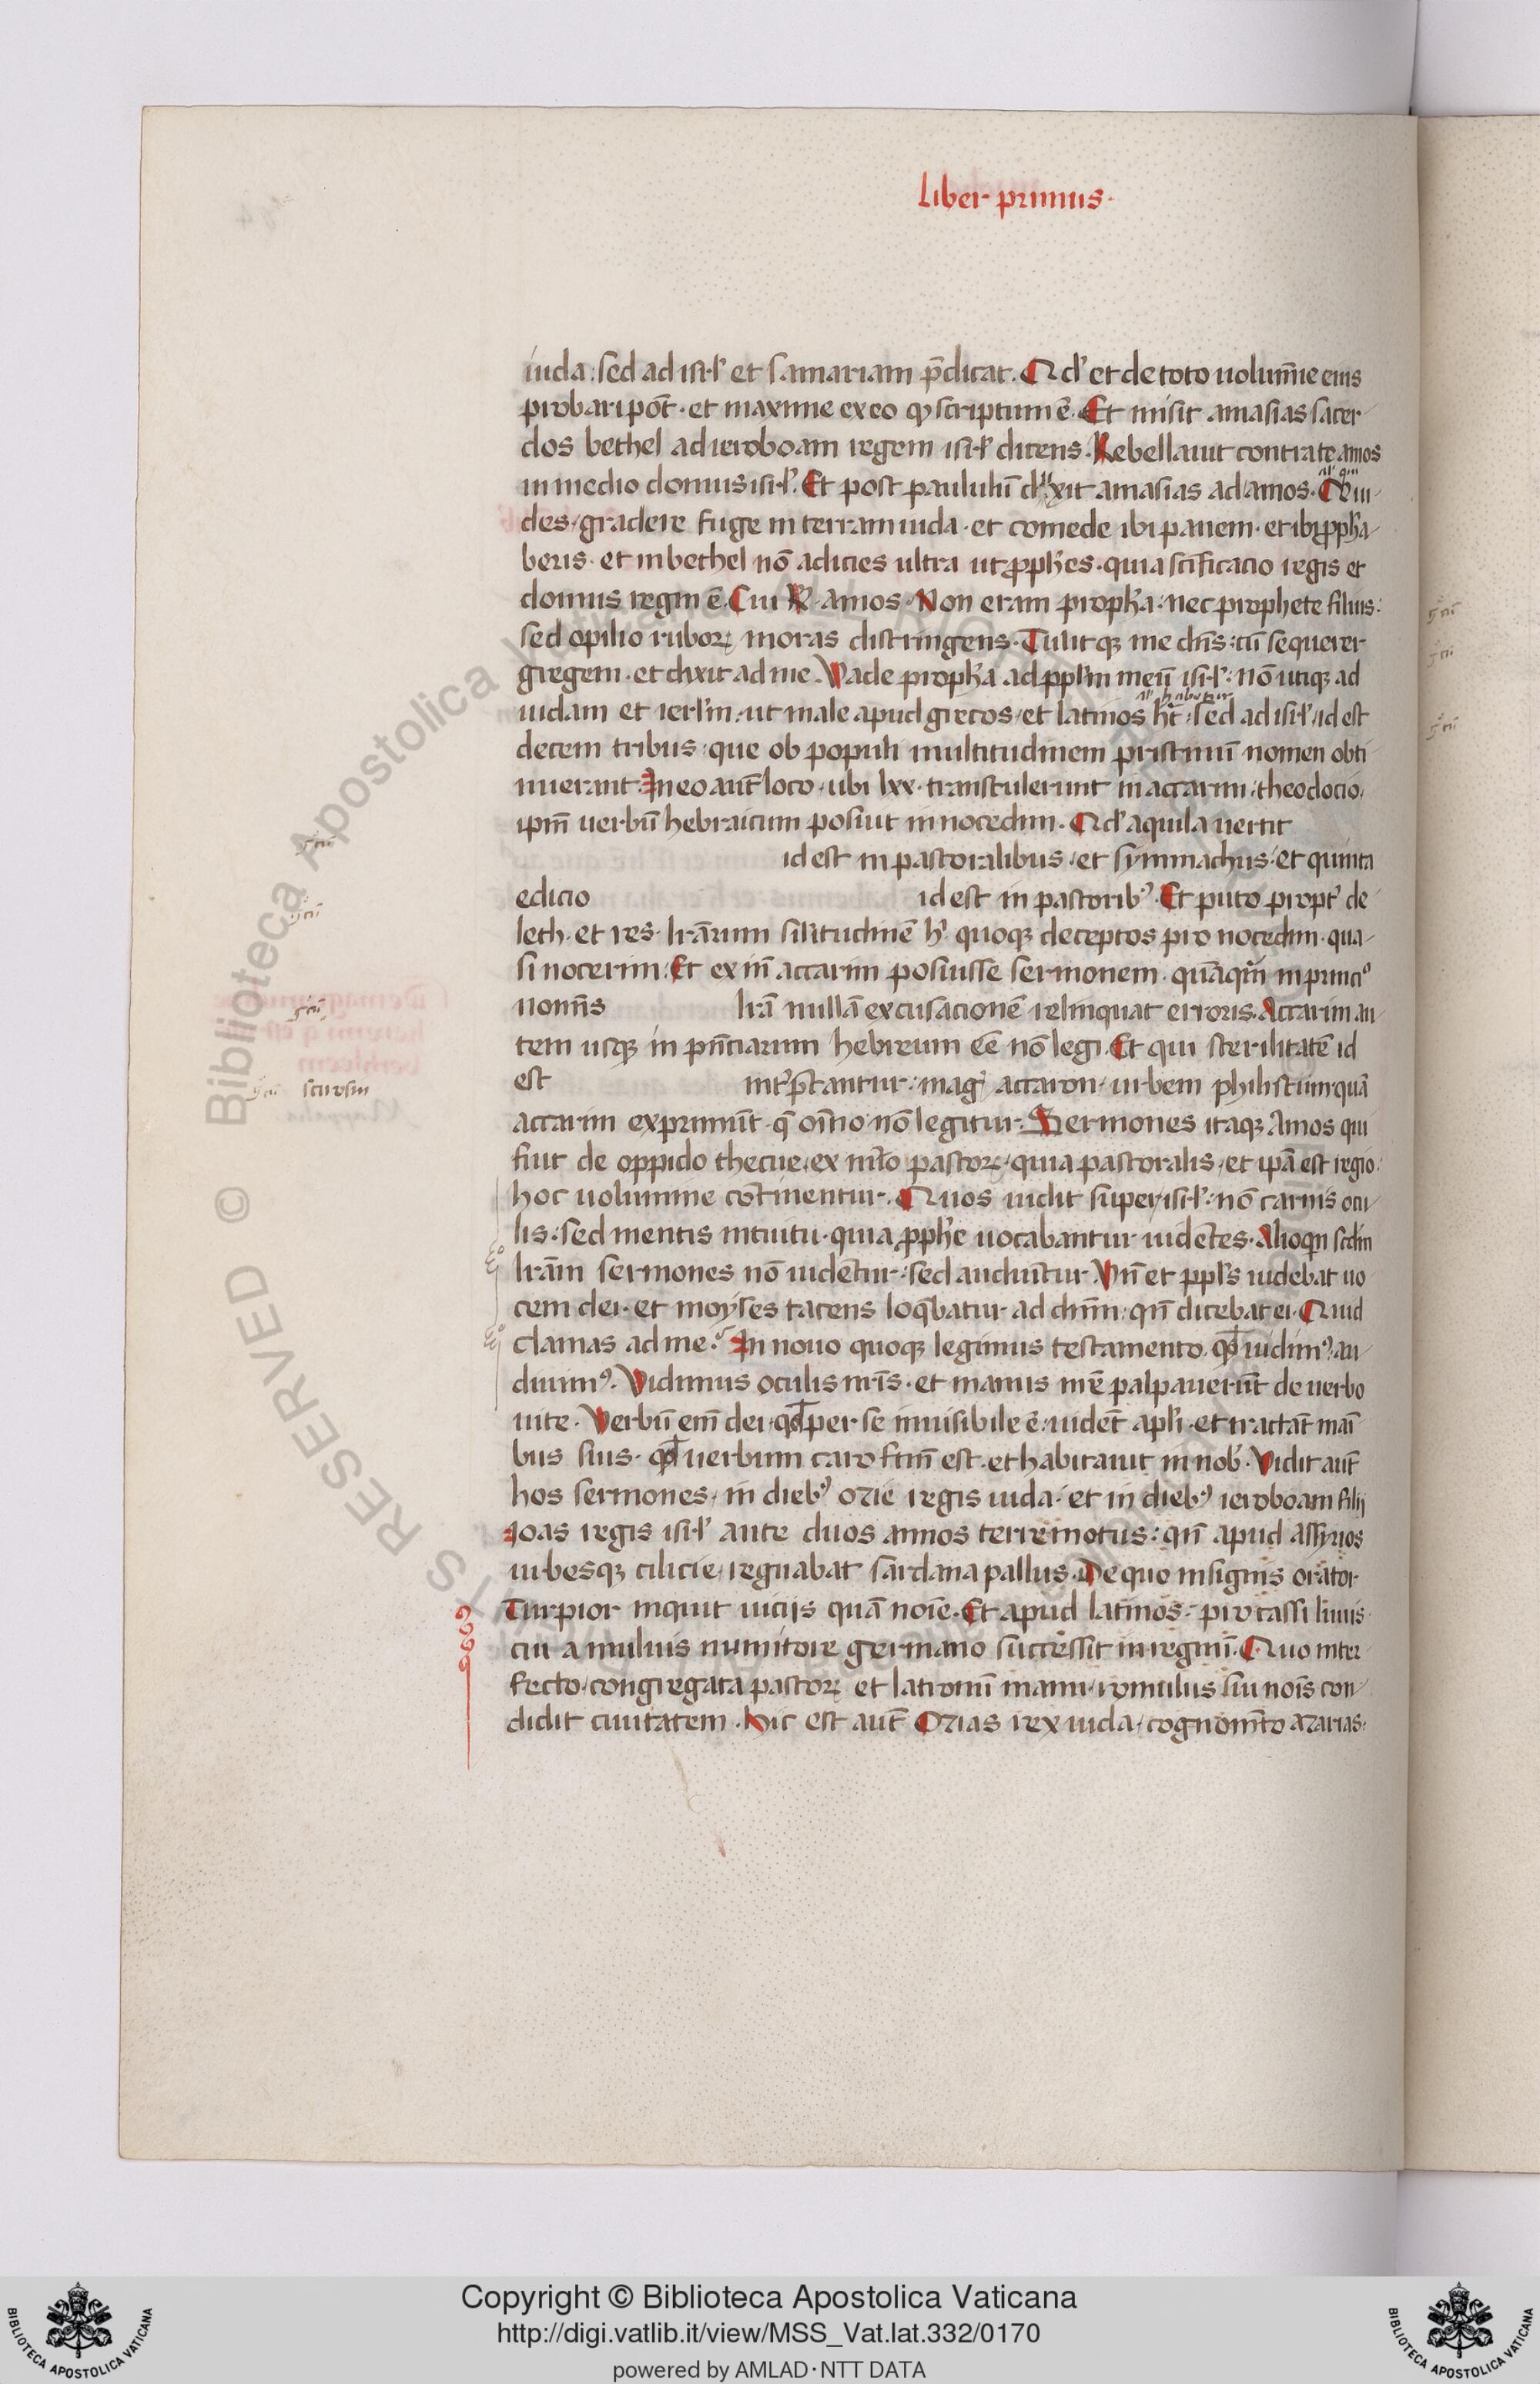 Liber primus.
iuda: sed ad isrl' et samariam p̄dicat. Qd' et de toto uolumīe eius
probari pōt. et maxime ex eo q̨ scriptum ē. Et misit amasias sacer-
dos bethel ad ieroboam regem isrl' dicens. Rebellauit contra te amos
in medio domus isrl'. Et post paululū dixit amasias ad amos. Qui ui-
des, gradere fuge in terram iuda. et comede ibi panem. et ibi ꝓph'a-
beris. et in bethel nō adicies ultra ut ꝓph'es. quia scīficacio regis et
domus regni ē. Cui R. amos. Non eram proph'a: nec prophete filius:
sed opilio ruboꝝ moras distringens. Tulitqꝫ me dn̄s: cū sequerer
gregem. et dixit ad me. Vade proph'a ad ppl'm meū isrl': nō utiqꝫ ad
al' habetur
iudam et ierl'm: ut male apud grecos, et latinos h't: sed ad isrl', id est
decem tribus, que ob populi multitudinem pristinū nomen obti
nuerant. In eo aut̄ loco, ubi lxx. transtulerunt in accarim, theodocio,
ipm̄ uerbū hebraicum posiuit in nocedim. Qd' aquila uertit
id est in pastoralibus, et symmachus, et quinta
edicio id est in pastoribꝰ. Et puto propt' de
leth. et res. lr̄arum sil'itudinē h' quoqꝫ deceptos pro nocedim. qua-
si nocerim. Et ex īn accarim posiusse sermonem. quāqm̄ in princiꝰ
nomīs lr̄ā nullā excusacionē relinquat erroris. Accarim au-
tem usqꝫ in pn̄ciarum hebreum eē nō legi. Et qui sterilitatē id
scurosm
est int'p̄tantur: mag' accaron, urbem philistium quā
accarim exprimūt. q̄ oīno nō legitur. Sermones itaqꝫ Amos qui
fuit de oppido thecue, ex nūo pastoꝝ, quia pastoralis, et ipā est regio:
hoc uolumine cōtinentur. Quos uidit super isrl': nō carnis ocu-
lis: sed mentis intuitu. quia ꝓph'e uocabantur uidētes. Alioqn scd'm
lr̄am sermones nō uidētur: sed audiūtur. Vn̄ et ppl's uidebat uo
cem dei. et moyses tacens loq̄batur ad dn̄m, qn̄ dicebat ei. Quid
clamas ad me? In nouo quoqꝫ legimus testamento. qd' uidimꝰ, au-
diuimꝰ. Vidimus oculis nr̄is. et manus nr̄ē palpauerūt de uerbo
uite. Verbū em̄ dei, qd' per se inuisibile ē: uidēt apl'i. et tractāt maī
bus suis. qd' uerbum caro fctm̄ est. et habitauit in nob'. Vidit aut̄
hos sermones, in diebꝰ ozie regis iuda. et in diebꝰ ieroboam filij
Joas regis isrl' ante duos annos terremotus: qn̄ apud assyrios
urbesqꝫ cilicie, regnabat sardana pallus. De quo insignis orator
Turpior inquit uicijs quā noīe. Et apud latinos: pro cassi liuius
cui amulius numitore germano successit in regnū. Quo inter-
fecto, congregata pastoꝝ et latronū manu, romulus sui noīs con-
didit ciuitatem. Hic est aut̄ Ozias rex iuda, cognom̄to azarias:
© Biblioteca Apostolica Vaticana
ALL RIGHTS RESERVED
Copyright © Biblioteca Apostolica Vaticana
http://digi.vatlib.it/view/MSS_Vat.lat.332/0170
powered by AMLAD·NTT DATA
BIBLIOTECA APOSTOLICA VATICANA
BIBLIOTECA APOSTOLICA VATICANA